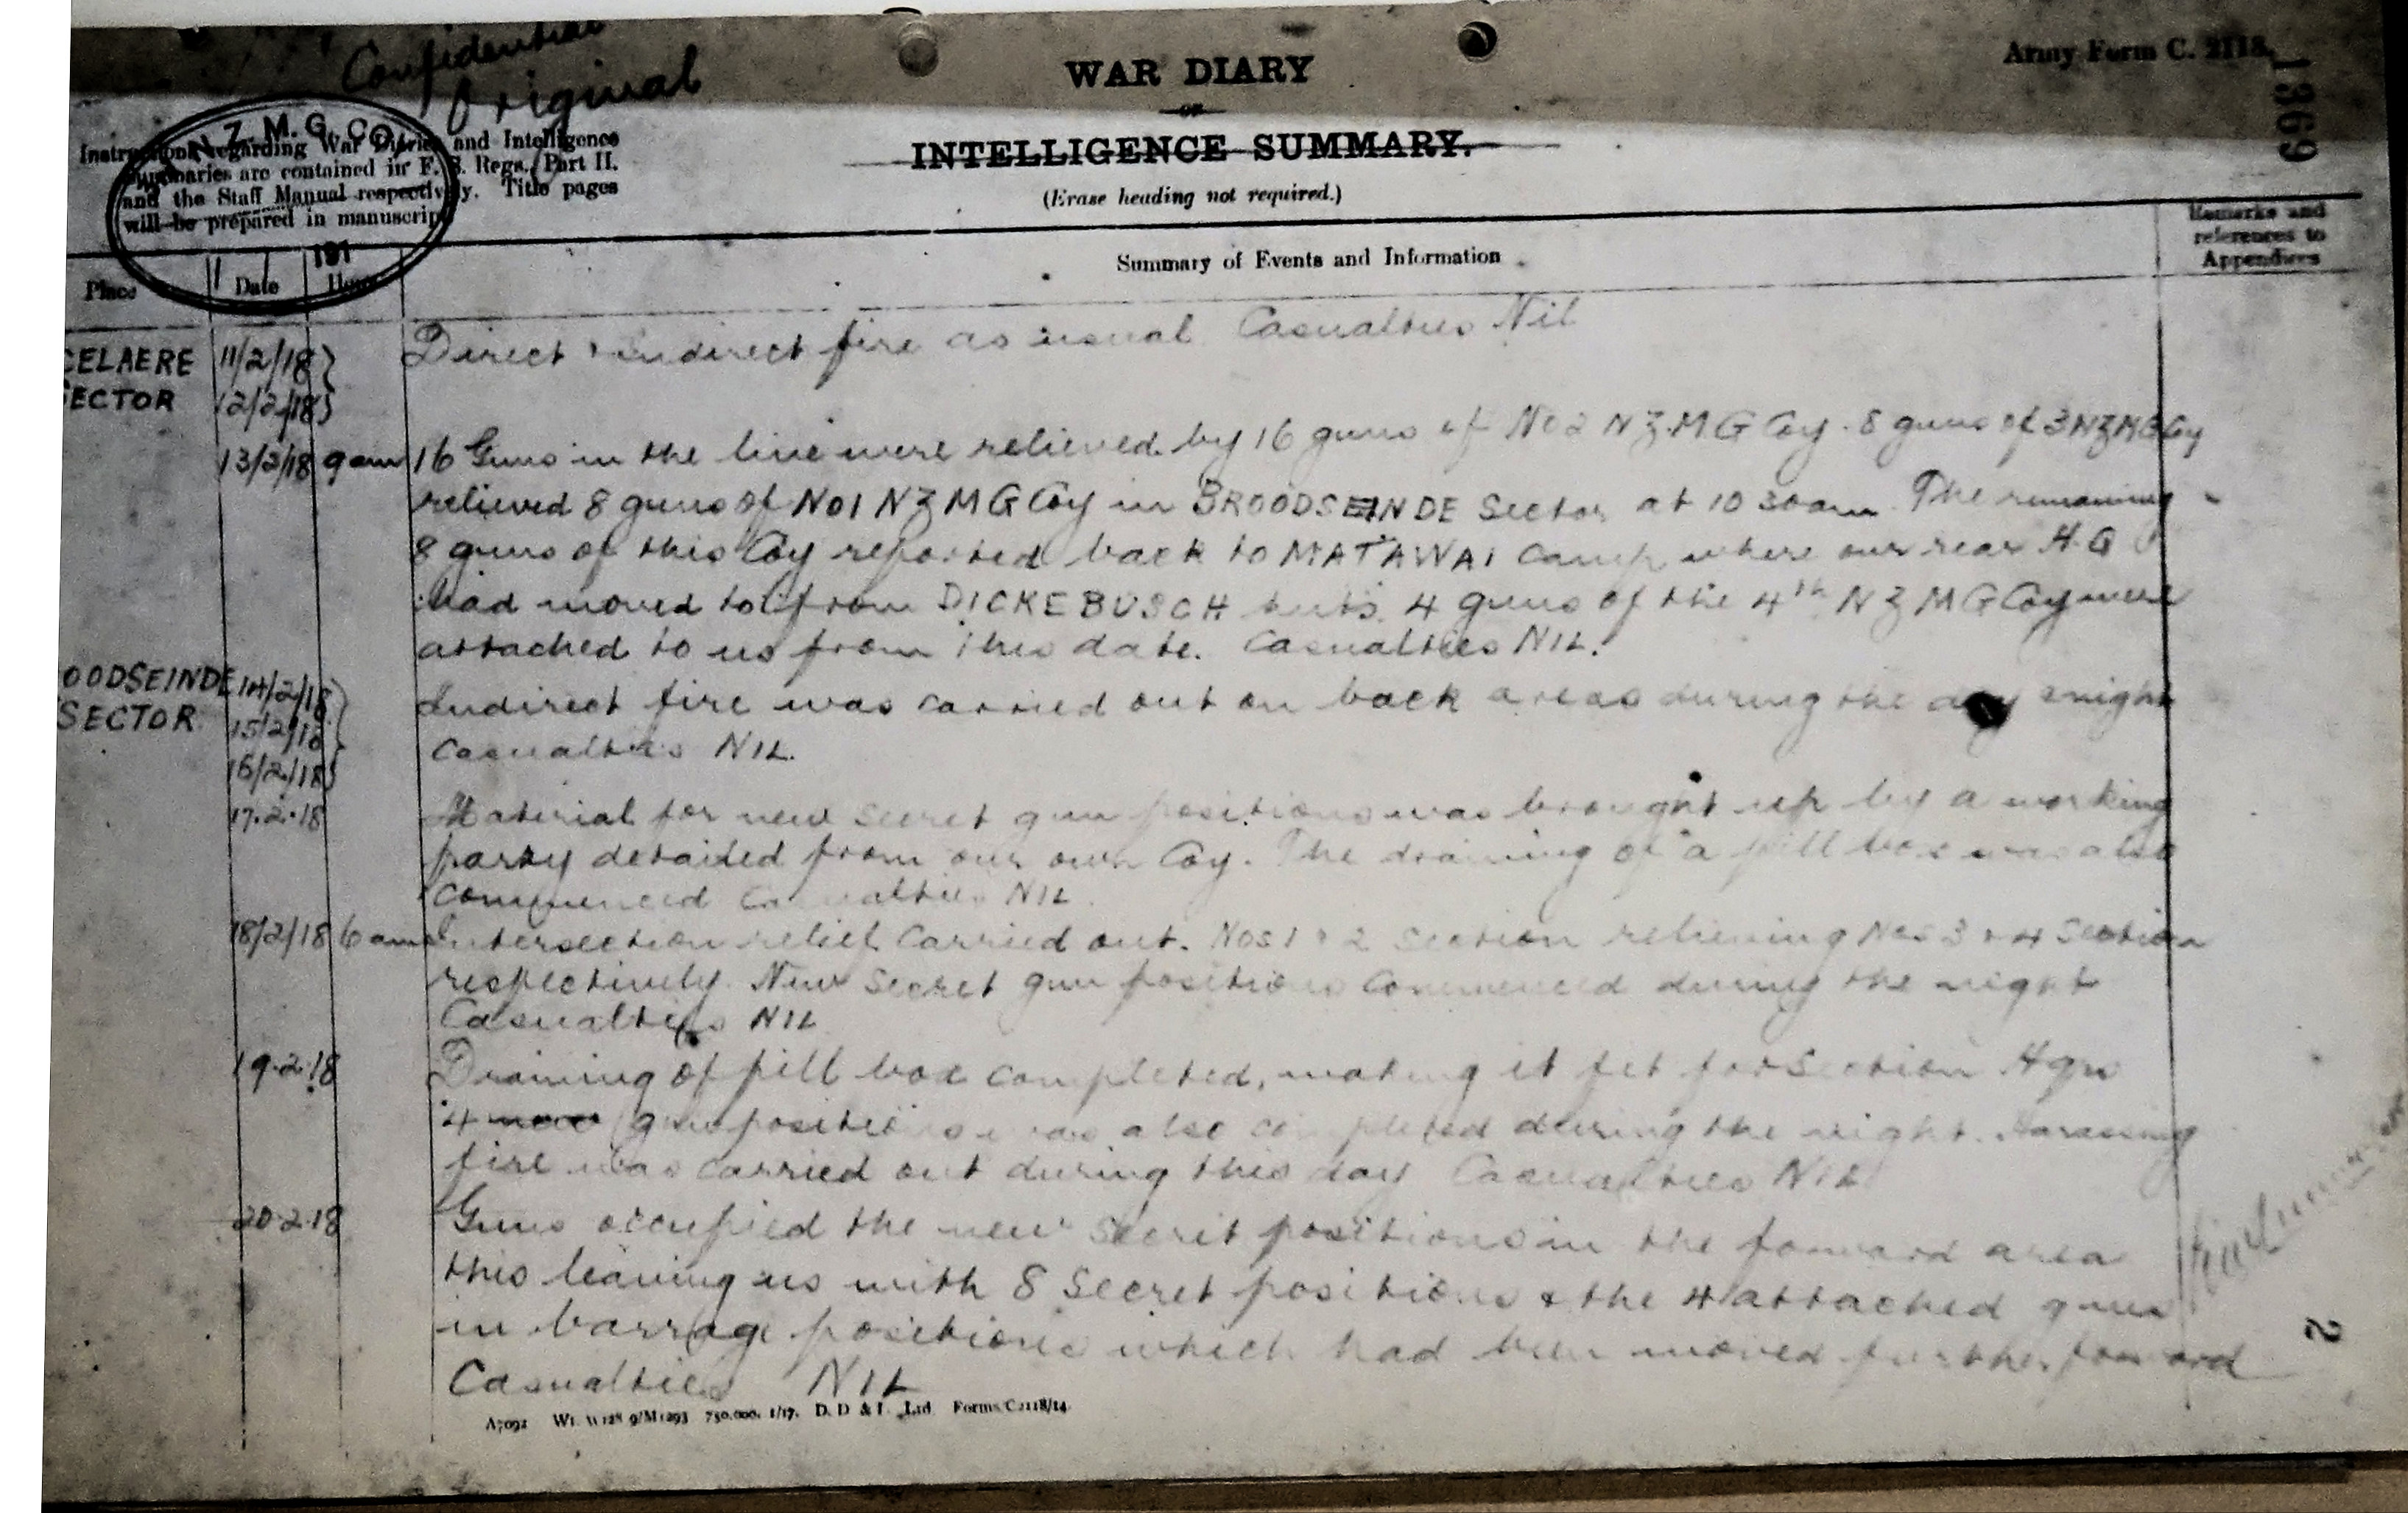 Confidential
Original
WAR DIARY
OR
INTELLIGENCE SUMMARY.
(Erase heading not required.)
Army Form C. 2118.
1369
N.Z. M.G. CO.
191
Instructions regarding War Diaries and Intelligence
Summaries are contained in F. S. Regs., Part II.
and the Staff Manual respectively. Title pages
will be prepared in manuscript
Place Date Hour
Summary of Events and Information
Remarks and
references to
Appendices
CELAERE 11/2/18 } Direct & Indirect fire as usual Casualties Nil
ECTOR 12/2/18 }
13/2/18 9 am 16 Guns in the line were relieved by 16 guns of No 2 NZ.M G Coy. 8 guns of 3 NZMG Coy
relieved 8 guns of No 1 N Z M G Coy in BROODSEINDE Sector at 10 30am. The remaining
8 guns of this Coy reported back to MATAWAI Camp where our rear H.Q
had moved to from DICKEBUSCH huts. 4 guns of the 4th N Z M G Coy were
attached to us from this date. Casualties NIL.
OODSEINDE 14/2/18 } Indirect fire was carried out on back areas during the day & night
SECTOR 15/2/18 } Casualties NIL.
16/2/18 }
17.2.18 Material for new secret gun positions was brought up by a working
party detailed from our own Coy. The draining of a pill box was also
commenced Casualties NIL.
18/2/18 6 am Intersection relief carried out. Nos 1 & 2 Section relieving Nos 3 & 4 Section
respectively. New Secret gun positions Commenced during the night
Casualties NIL
19.2.18 Draining of pill box completed, making it fit for Section Hqrs
4 gun positions was also completed during the night. Harassing
fire was carried out during this day Casualties NIL
20.2.18 Guns occupied the new secret positions in the forward area
this leaving us with 8 Secret positions & the 4 attached guns
in barrage positions which had been moved further forward
Casualties NIL
2
A7092 Wt. W128 9/M1293 750,000. 1/17. D. D & L Ltd Forms/C2118/14.